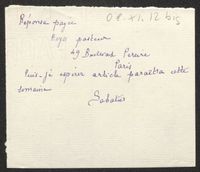 08.XI.12 bis
Réponse payée
pasteur
49 Boulevard Pereire
Paris
Puis-je espérer article paraîtra cette
semaine
Sabatier